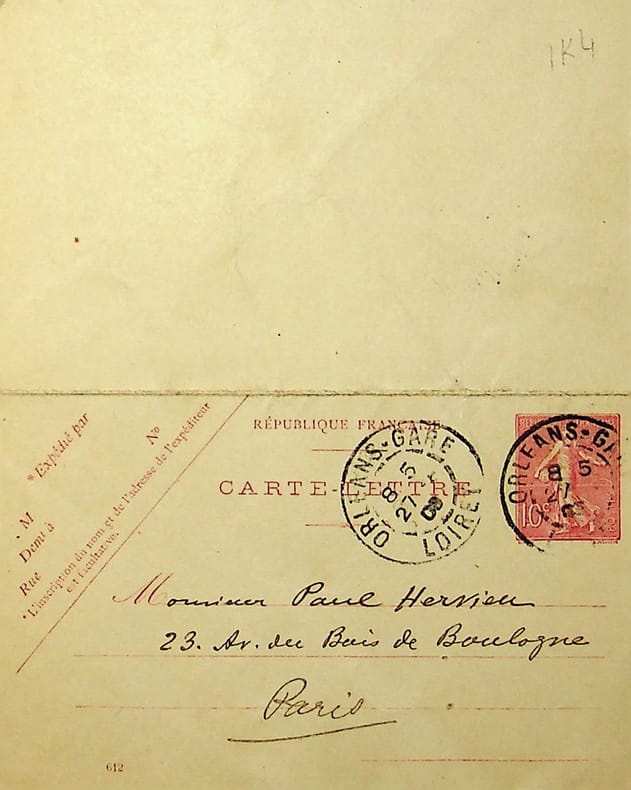 1K4
* Expédié par
M
Demt à
Rue
No
* L'inscription du nom et de l'adresse de l'expéditeur
est facultative.
RÉPUBLIQUE FRANÇAISE
CARTE-LETTRE
ORLEANS-GARE
8 5
27
08
LOIRET
ORLEANS-GA
8 5
27
10c
Monsieur Paul Hervieu
23. Av. du Bois de Boulogne
Paris
612